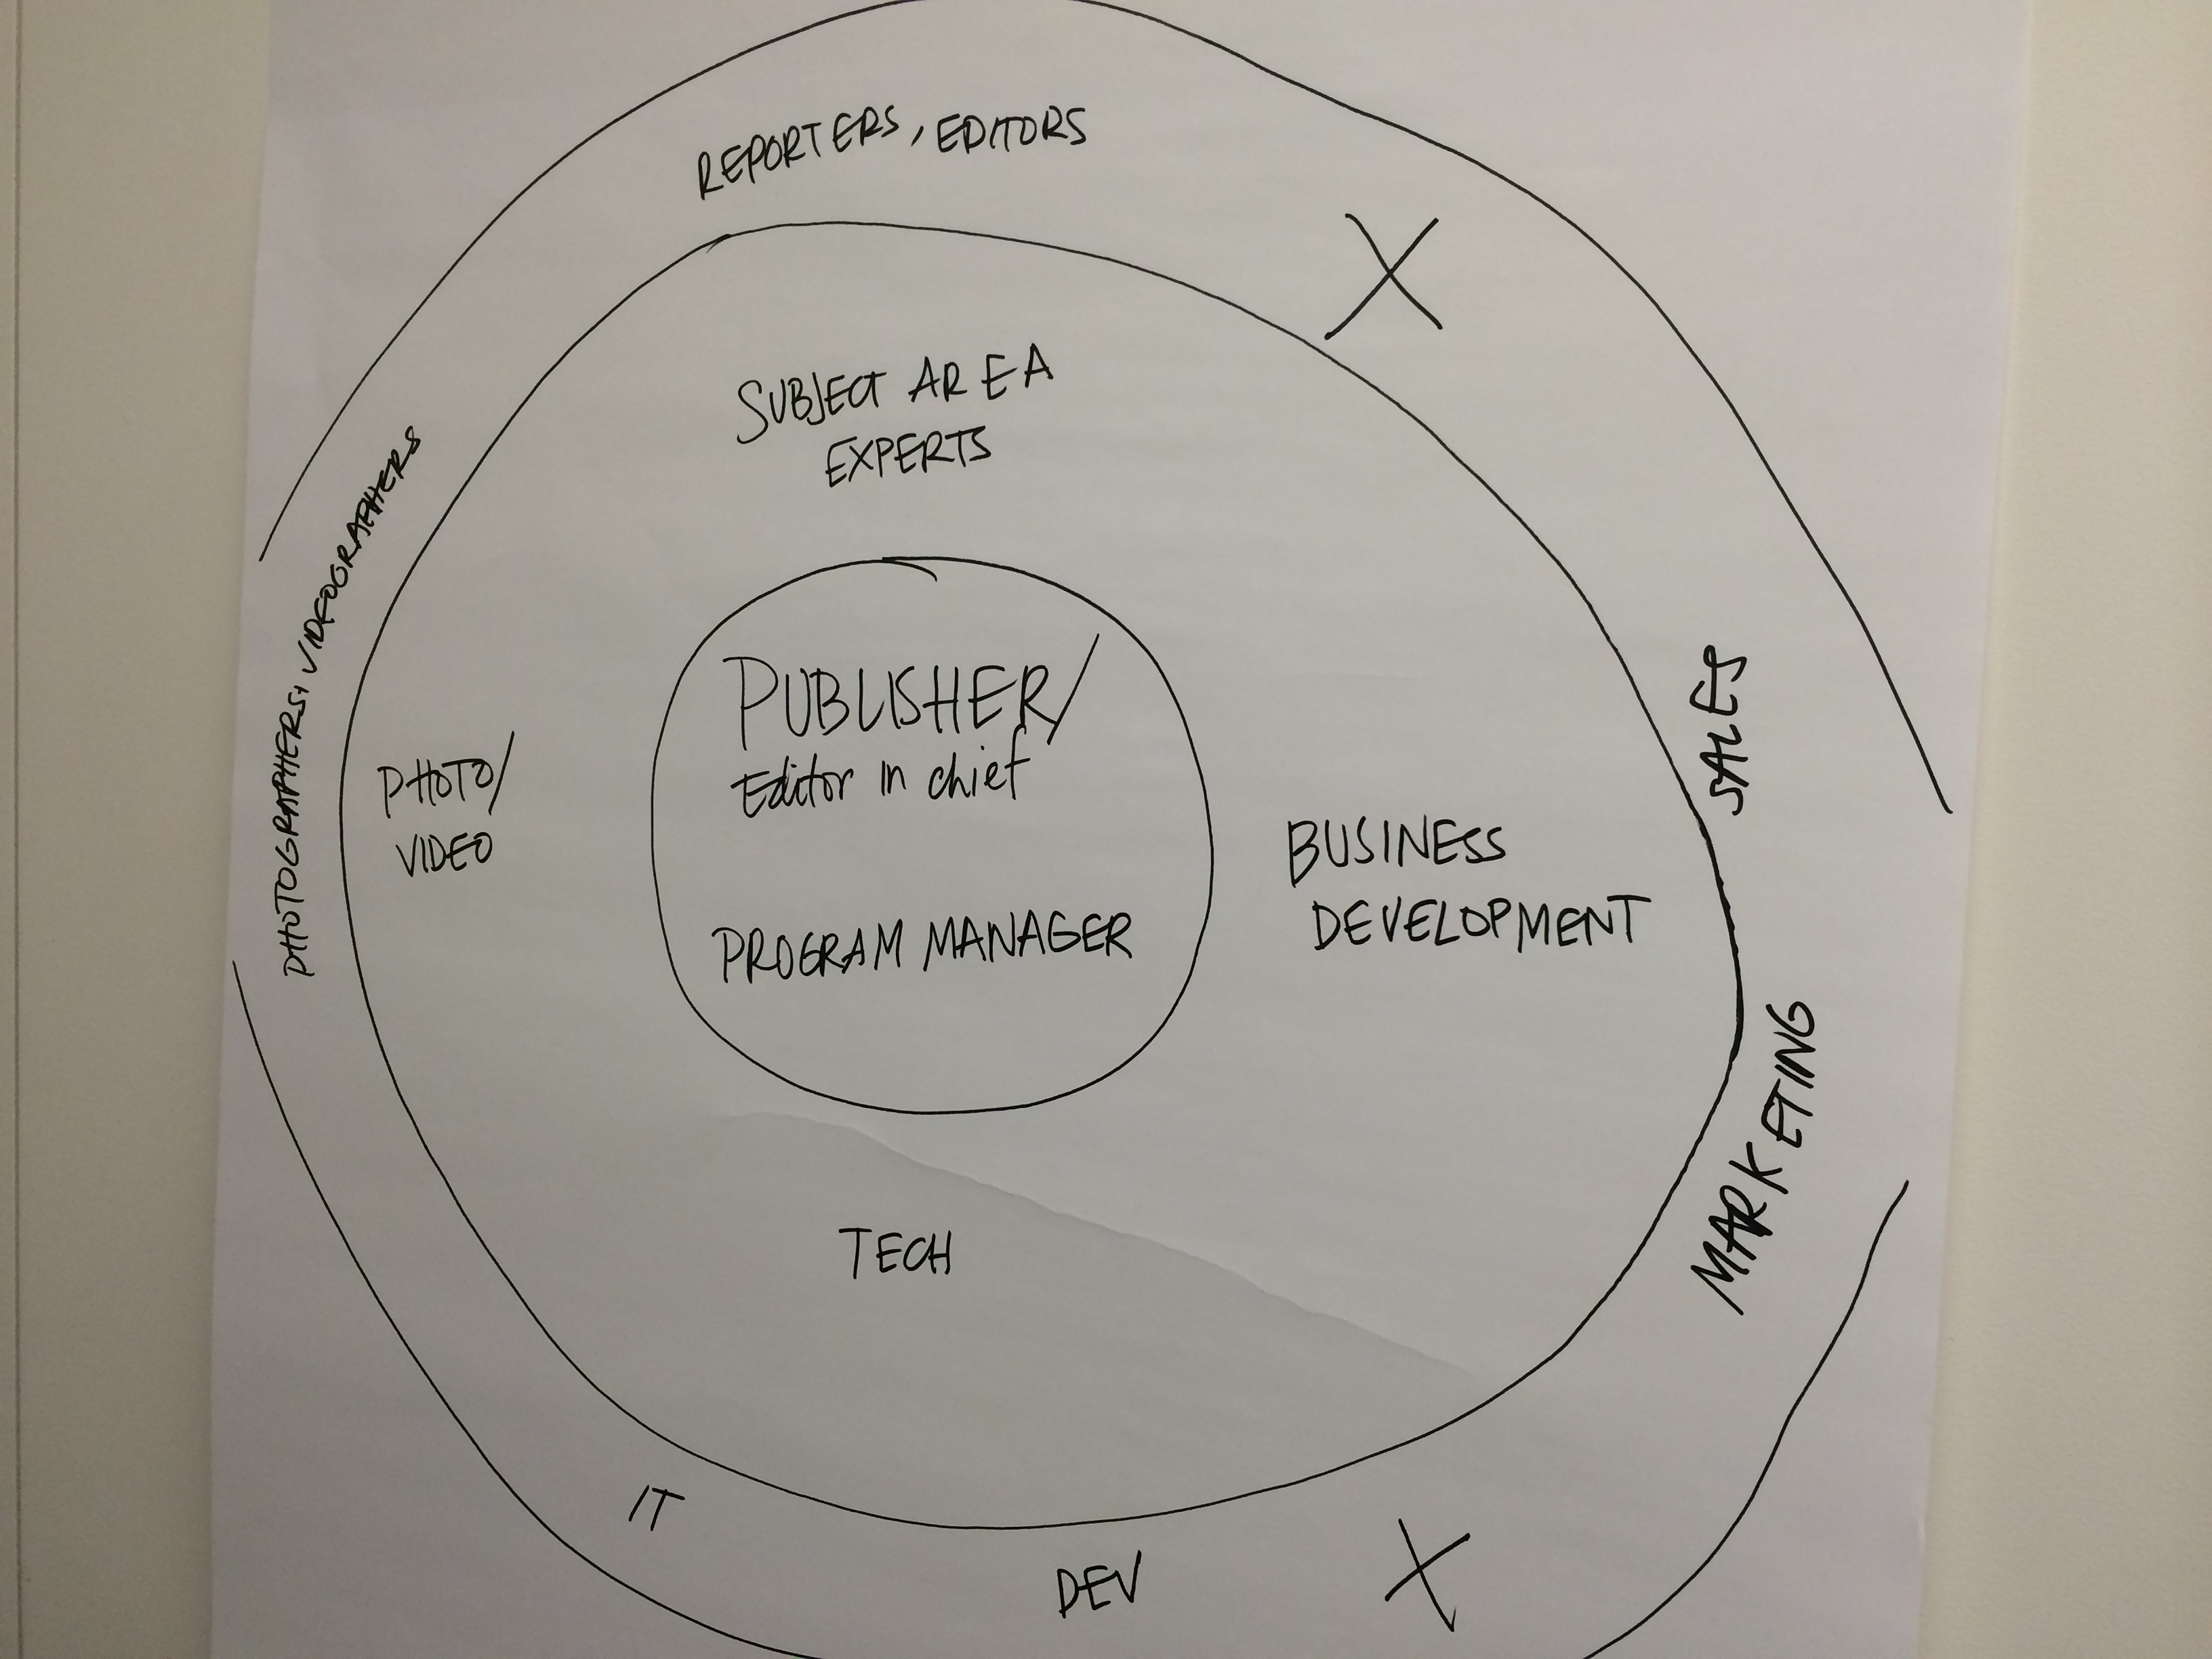 REPORTERS, EDITORS
X
SUBJECT AREA
EXPERTS
PHOTOGRAPHERS, VIDEOGRAPHERS
PUBLISHER/
Editor in chief
PROGRAM MANAGER
PHOTO/
VIDEO
BUSINESS
DEVELOPMENT
SALES
MARKETING
TECH
IT
DEV
X